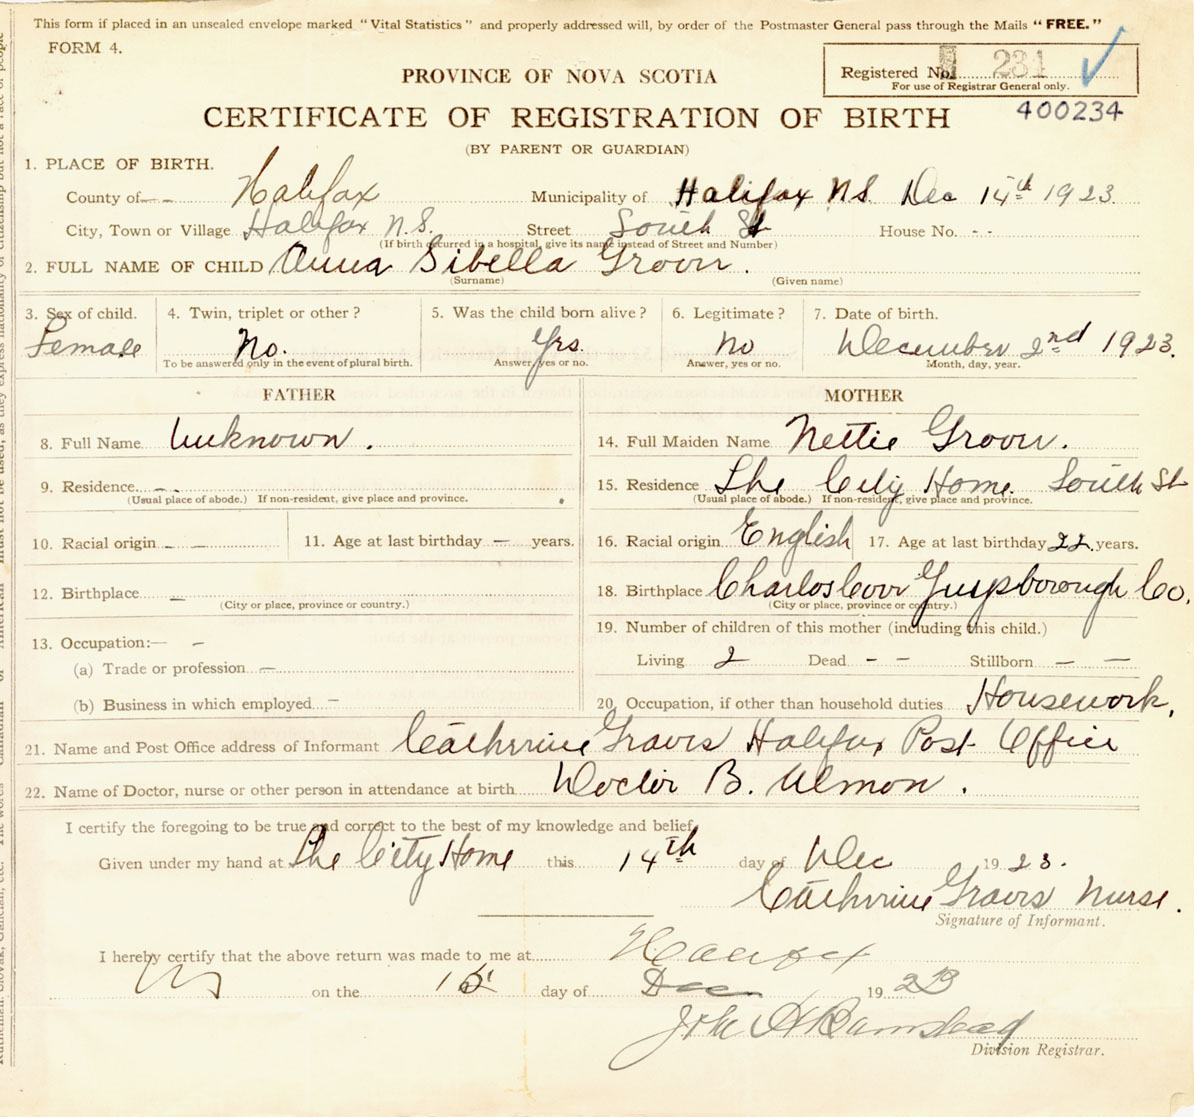 This form if placed in an unsealed envelope marked "Vital Statistics" and properly addressed will, by order of the Postmaster General pass through the Mails "FREE."
FORM 4.
Registered No. 234
For use of Registrar General only.
PROVINCE OF NOVA SCOTIA
400234
CERTIFICATE OF REGISTRATION OF BIRTH
(BY PARENT OR GUARDIAN)
1. PLACE OF BIRTH.
County of Halifax Municipality of Halifax N.S. Dec 14th 1923.
City, Town or Village Halifax N.S. Street South St House No. - -
(If birth occurred in a hospital, give its name instead of Street and Number)
2. FULL NAME OF CHILD Anna Sibella Grover.
(Surname) (Given name)
3. Sex of child. 4. Twin, triplet or other? 5. Was the child born alive? 6. Legitimate? 7. Date of birth.
Female No. Yes No December 2nd 1923.
To be answered only in the event of plural birth. Answer, yes or no. Answer, yes or no. Month, day, year.
FATHER MOTHER
8. Full Name Unknown. 14. Full Maiden Name Nettie Grover.
9. Residence - 15. Residence The City Home South St
(Usual place of abode.) If non-resident, give place and province. (Usual place of abode.) If non-resident, give place and province.
10. Racial origin - - 11. Age at last birthday - years. 16. Racial origin English 17. Age at last birthday 22 years.
12. Birthplace - 18. Birthplace Charlos Cove Guysborough Co.
(City or place, province or country.) (City or place, province or country.)
13. Occupation:— - 19. Number of children of this mother (including this child.)
(a) Trade or profession - Living 2 Dead - - Stillborn - -
(b) Business in which employed - 20. Occupation, if other than household duties Housework.
21. Name and Post Office address of Informant Catherine Graves Halifax Post Office
22. Name of Doctor, nurse or other person in attendance at birth Doctor B. Almon.
I certify the foregoing to be true and correct to the best of my knowledge and belief.
Given under my hand at The City Home this 14th day of Dec 1923.
Catherine Graves Nurse.
Signature of Informant.
I hereby certify that the above return was made to me at Halifax
NS on the 15 day of Dec 1923
Division Registrar.